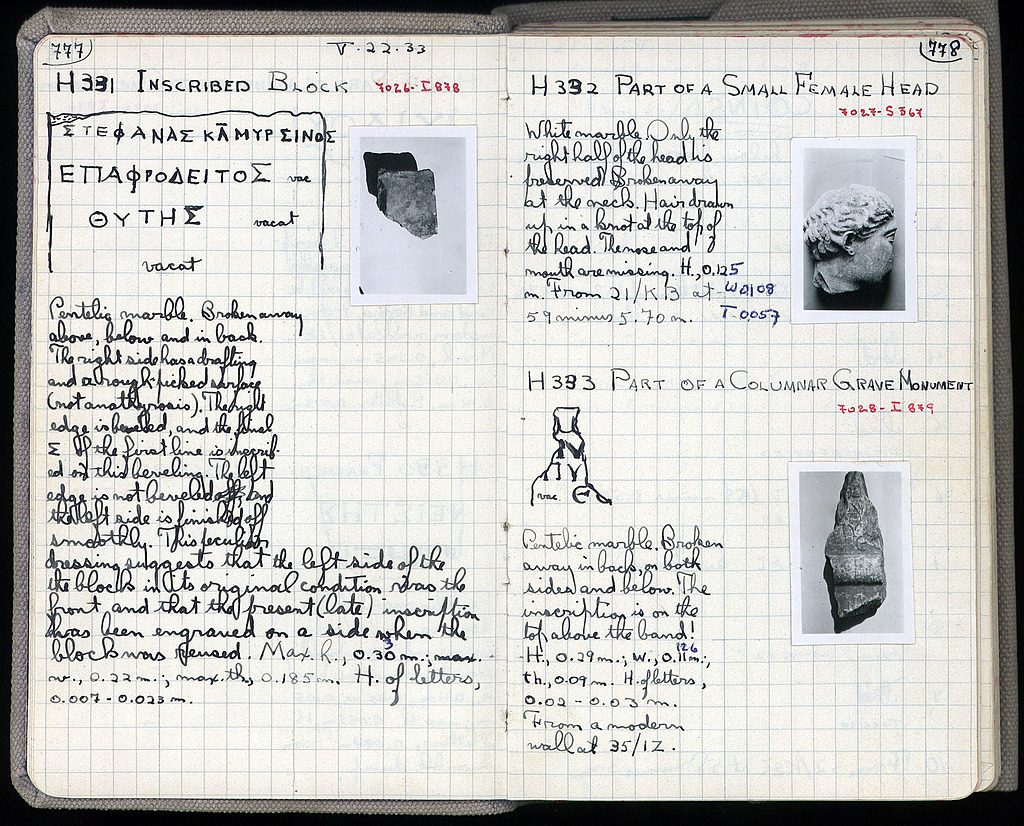 777
V·22·33
H331 INSCRIBED BLOCK
7026-I 878
ΣΤΕΦΑΝΑΣ ΚᾹΜΥΡΣΙΝΟΣ
ΕΠΑΦΡΟΔΕΙΤΟΣ vac
ΘΥΤΗΣ vacat
vacat
Pentelic marble. Broken away
above, below and in back.
The right side has a drafting
and a rough-picked surface
(not anathyrosis). The right
edge is beveled, and the final
Σ of the first line is inscrib-
ed on this beveling. The left
edge is not beveled off, and
the left side is finished off
smoothly. This peculiar
dressing suggests that the left side of the
the block in its original condition was the
front and that the present (late) inscription
has been engraved on a side when the
block was reused. Max. h., 0.30 m.; max.
3
w., 0.22 m.; max. th., 0.185 m. H. of letters,
0.007-0.023 m.
778
H332 PART OF A SMALL FEMALE HEAD
7027-S 367
White marble. Only the
right half of the head is
preserved. Broken away
at the neck. Hair drawn
up in a knot at the top of
the head. The nose and
mouth are missing. H., 0.125
m. From 21/KB at
59 minus 5.70 m.
T-0057
H333 PART OF A COLUMNAR GRAVE MONUMENT
7028-I 879
N
vac. Θ
Pentelic marble. Broken
away in back, on both
sides and below. The
inscription is on the
top above the band!
126
H., 0.29 m.; W., 0.11 m.;
th., 0.09 m. H. of letters,
0.02-0.03 m.
From a modern
wall at 35/IZ.